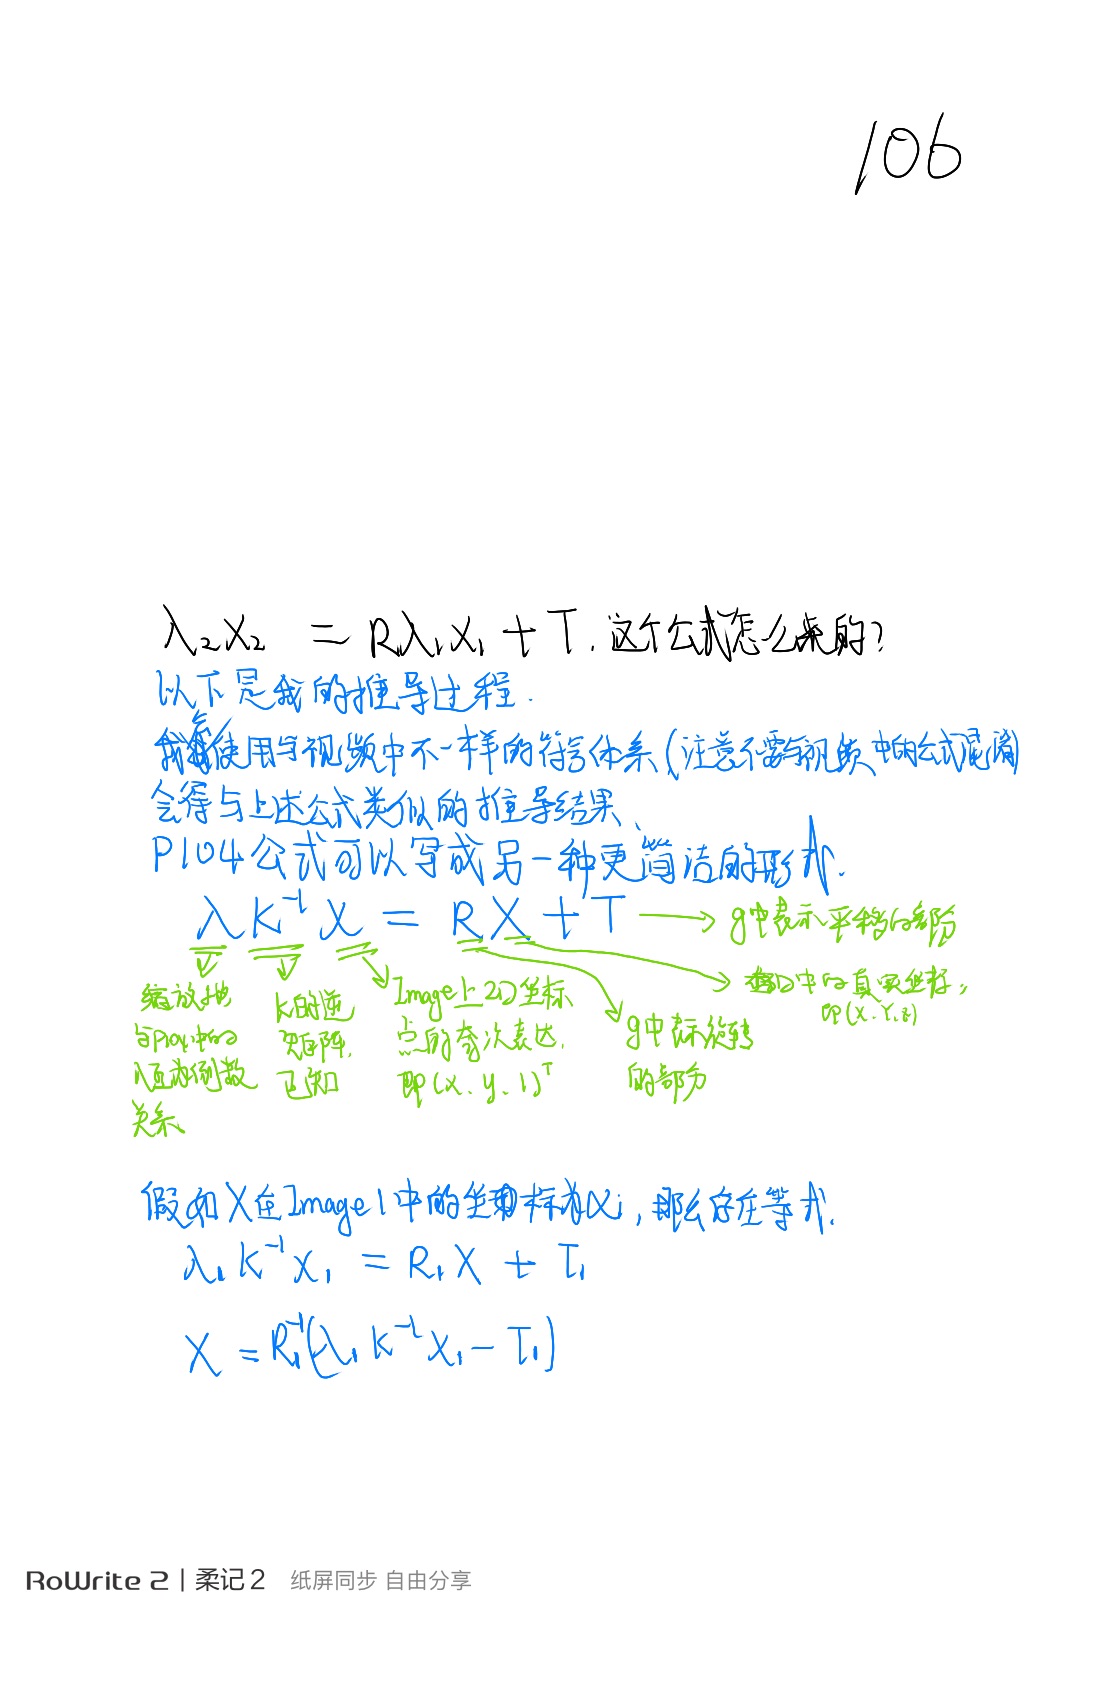 106
λ₂x₂ = Rλ₁x₁ + T. 这个公式怎么来的?
以下是我的推导过程.
我会使用与视频中不一样的符号体系(注意不要与视频中的公式混淆)
会得与上述公式类似的推导结果、
P104公式可以写成另一种更简洁的形式.
λ K⁻¹ x = R X + T → g中表示平移的部分
缩放
与P104中的
λ互为倒数
关系
K的逆
矩阵,
已知
Image上2D坐标
点的齐次表达,
即(x、y、1)ᵀ
g中表示旋转
的部分
中的真实坐标,
即(X、Y、Z)
假如X在Image1中的坐标为x₁, 那么存在等式.
λ₁ K⁻¹ x₁ = R₁ X + T₁
X = R₁⁻¹(λ₁ K⁻¹ x₁ − T₁)
RoWrite 2 | 柔记 2 纸屏同步 自由分享